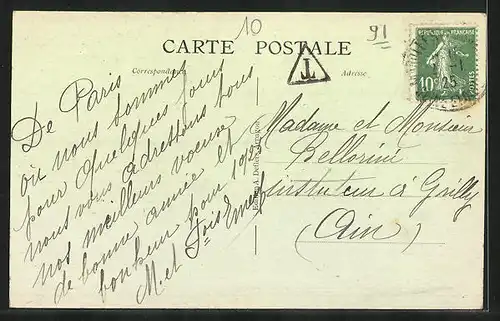 10
91
CARTE POSTALE
Correspondance
Adresse
T
REPUBLIQUE FRANÇAISE
10
POSTES
25
De Paris
où nous sommes
pour quelques jours
nous vous adressons tous
nos meilleurs voeux
de bonne année et
bonheur pour 1925
M. et
Madame et Monsieur
Bellorini
instituteur à Grilly
(Ain)